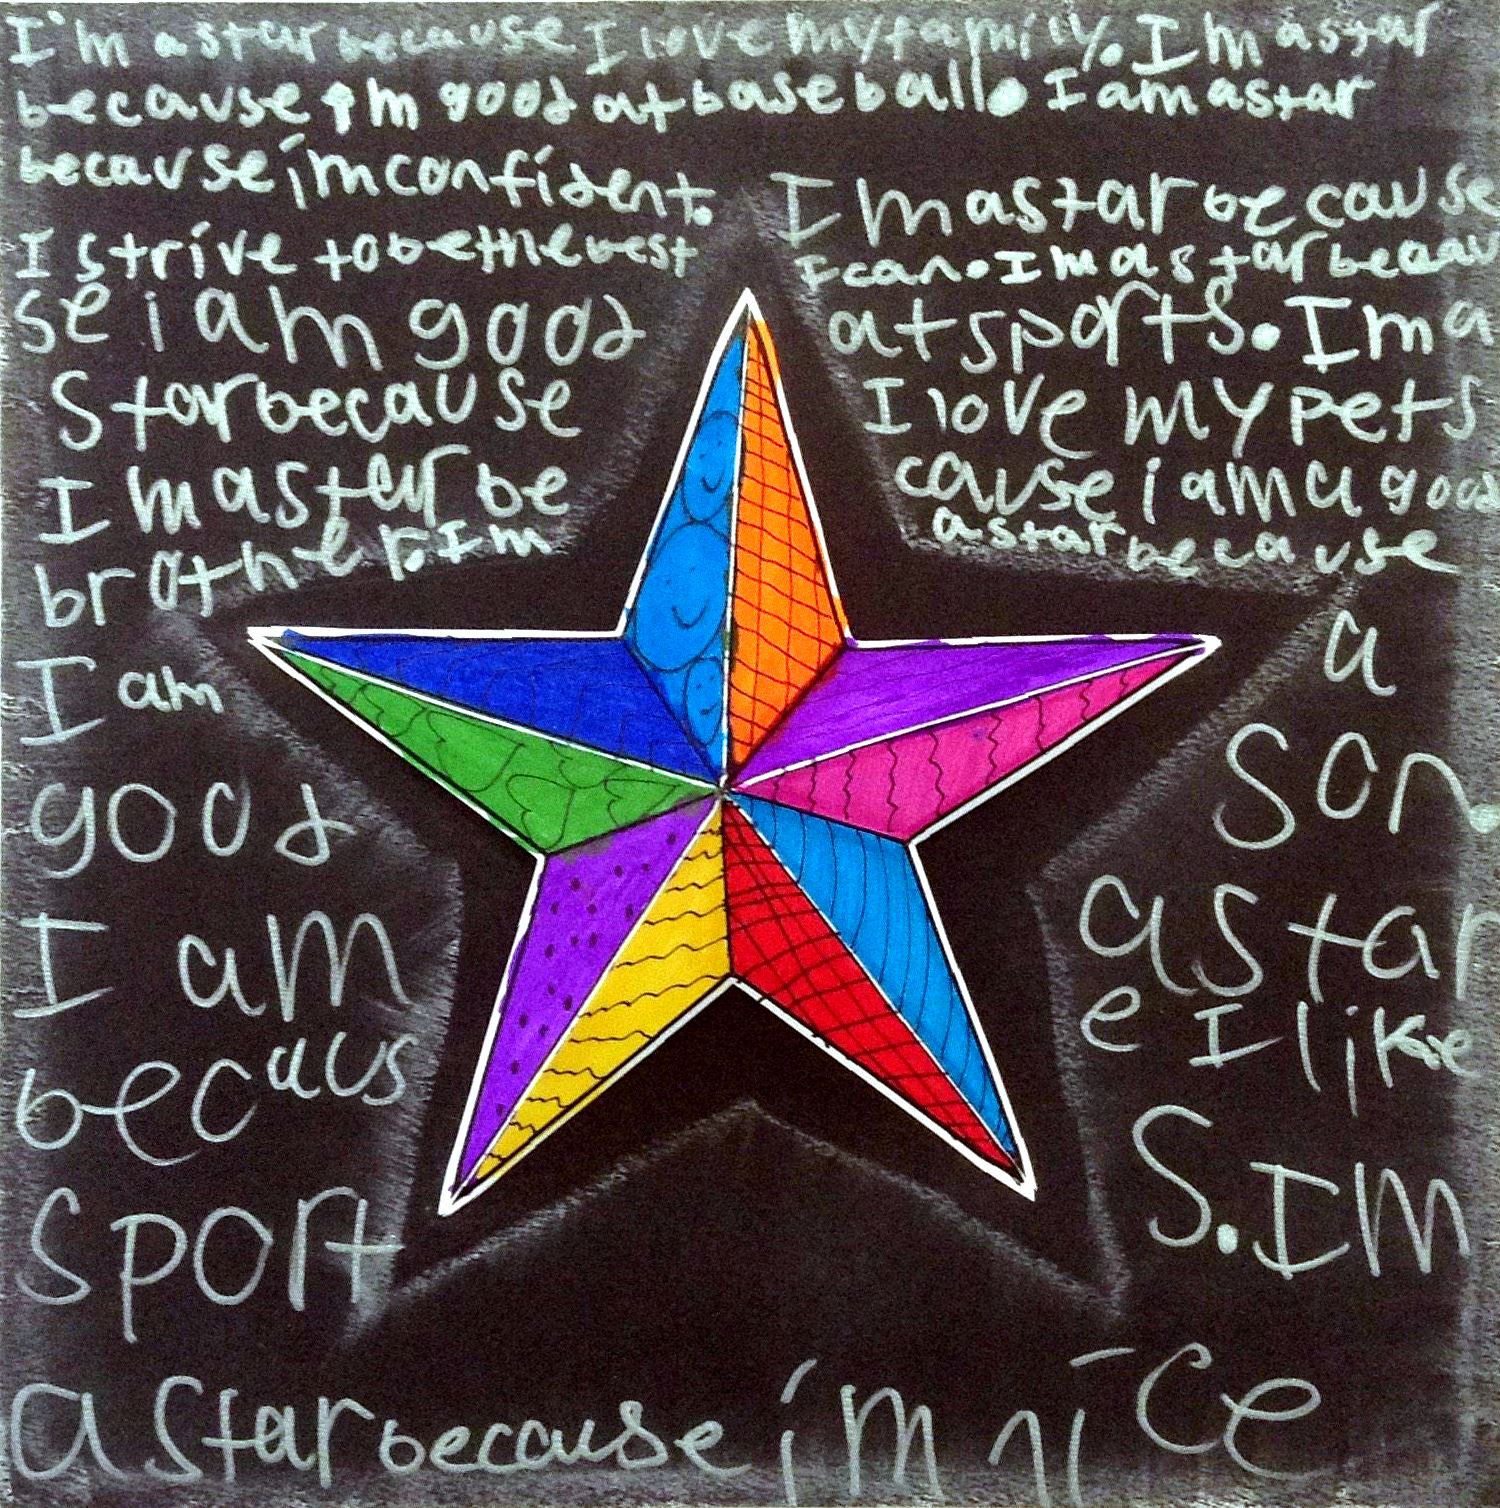 I'm a star because I love my family. I'm a star
because I'm good at baseball. I am a star
because im confident. Im a star because
I strive to be the best I can. Im a star becau
se i am good at sports. Im a
star because I love my pets
Im a star be cause i am a good
brother. Im a star because
I am a
good son.
I am a star
becaus e I like
sport s. Im
a star because im nice